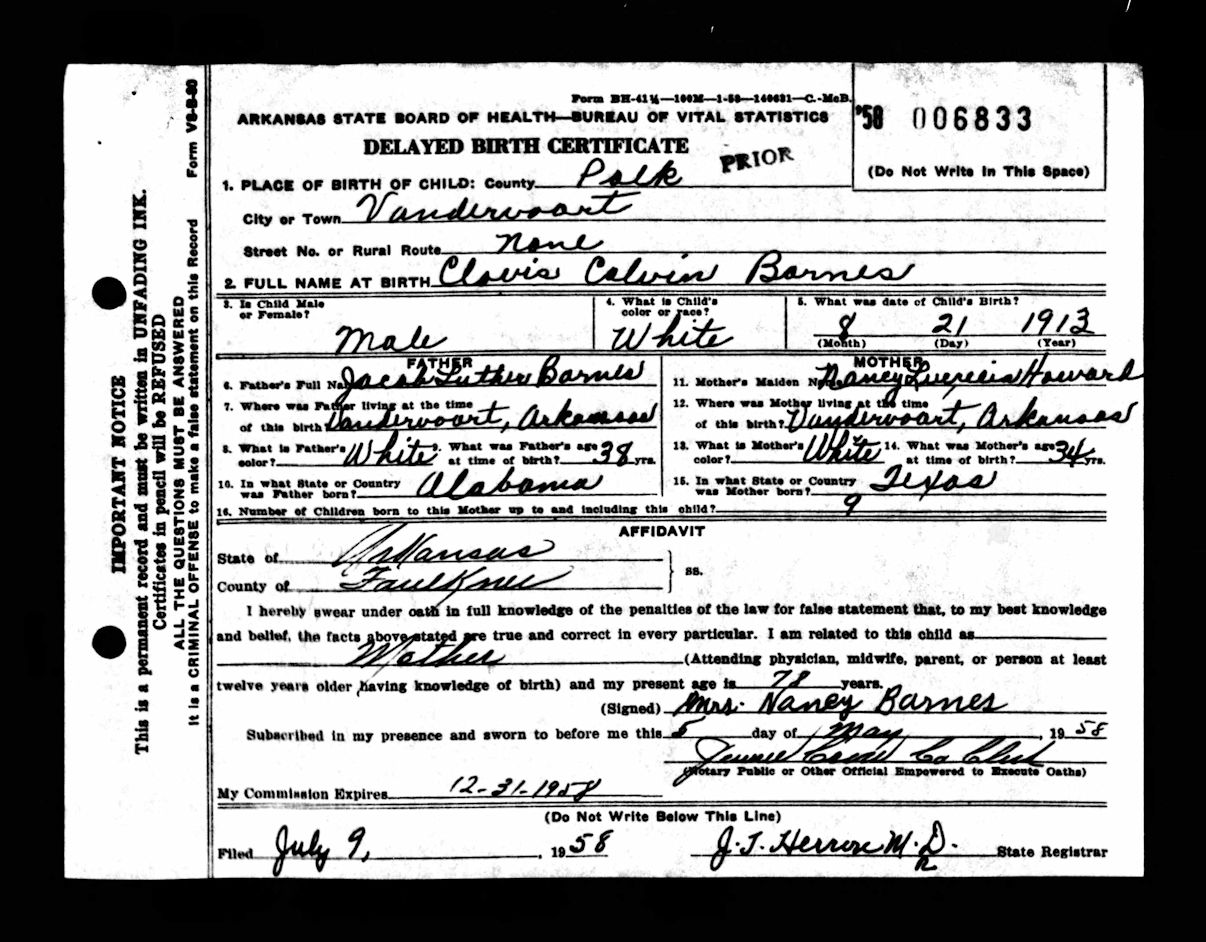 Form BH-41½—100M—1-58—140631—C.-McB.
ARKANSAS STATE BOARD OF HEALTH—BUREAU OF VITAL STATISTICS
'58 006833
DELAYED BIRTH CERTIFICATE
PRIOR
(Do Not Write in This Space)
1. PLACE OF BIRTH OF CHILD: County Polk
City or Town Vandervoort
Street No. or Rural Route None
2. FULL NAME AT BIRTH Clovis Calvin Barnes
3. Is Child Male or Female? Male
4. What is Child's color or race? White
5. What was date of Child's Birth? 8 21 1913
(Month) (Day) (Year)
FATHER
6. Father's Full Name Jacob Luther Barnes
7. Where was Father living at the time
of this birth? Vandervoort, Arkansas
8. What is Father's color? White 9. What was Father's age at time of birth? 38 yrs.
10. In what State or Country was Father born? Alabama
MOTHER
11. Mother's Maiden Name Nancy Lucrecia Howard
12. Where was Mother living at the time
of this birth? Vandervoort, Arkansas
13. What is Mother's color? White 14. What was Mother's age at time of birth? 34 yrs.
15. In what State or Country was Mother born? Texas
16. Number of Children born to this Mother up to and including this child? 9
AFFIDAVIT
State of Arkansas
County of Faulkner
ss.
I hereby swear under oath in full knowledge of the penalties of the law for false statement that, to my best knowledge
and belief, the facts above stated are true and correct in every particular. I am related to this child as
Mother (Attending physician, midwife, parent, or person at least
twelve years older having knowledge of birth) and my present age is 78 years.
(Signed) Mrs. Nancy Barnes
Subscribed in my presence and sworn to before me this 5 day of May, 1958
Co Clerk
(Notary Public or Other Official Empowered to Execute Oaths)
My Commission Expires 12-31-1958
(Do Not Write Below This Line)
Filed July 9, 1958 J. T. Herron M.D. State Registrar
Form VS-B-80
IMPORTANT NOTICE
This is a permanent record and must be written in UNFADING INK.
Certificates in pencil will be REFUSED
ALL THE QUESTIONS MUST BE ANSWERED
It is a CRIMINAL OFFENSE to make a false statement on this Record